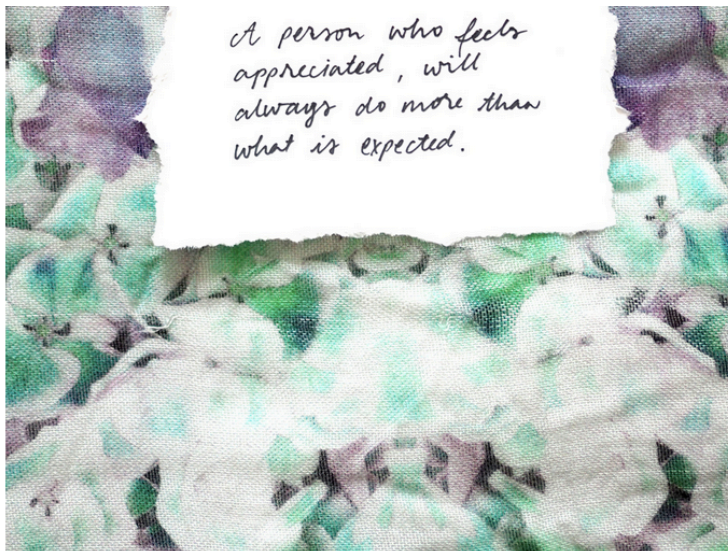 A person who feels
appreciated, will
always do more than
what is expected.